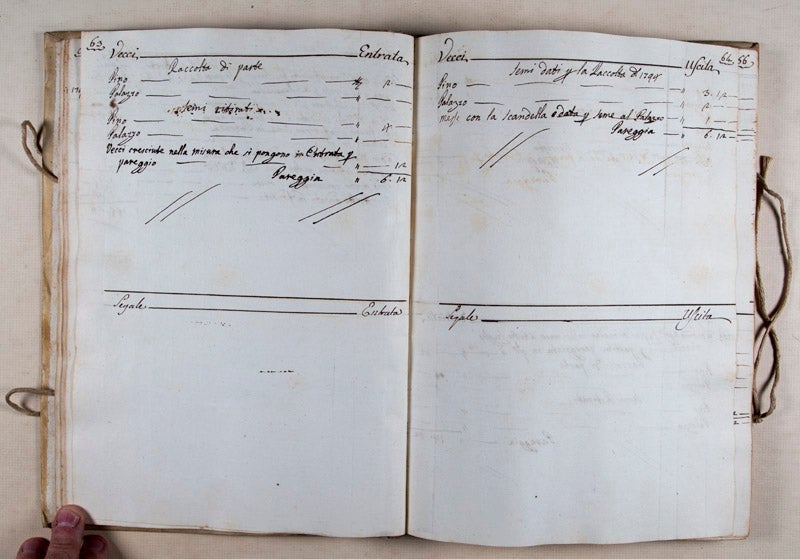 63
Vecci Entrata
Raccolta di parte
Pino 2
Palazzo
Semi ritirati
Pino
Palazzo 4
Vecci cresciute nella misura che si pongono in Entrata p
pareggio " 1/2
Pareggia " 6 1/2
Segale Entrata
64 56
Vecci Uscita
Semi dati p la Raccolta d 1798
Pino " 3 1/2
Palazzo " 2
messe con la scandella e data p seme al Palazzo " 1
Pareggia " 6 1/2
Segale Uscita